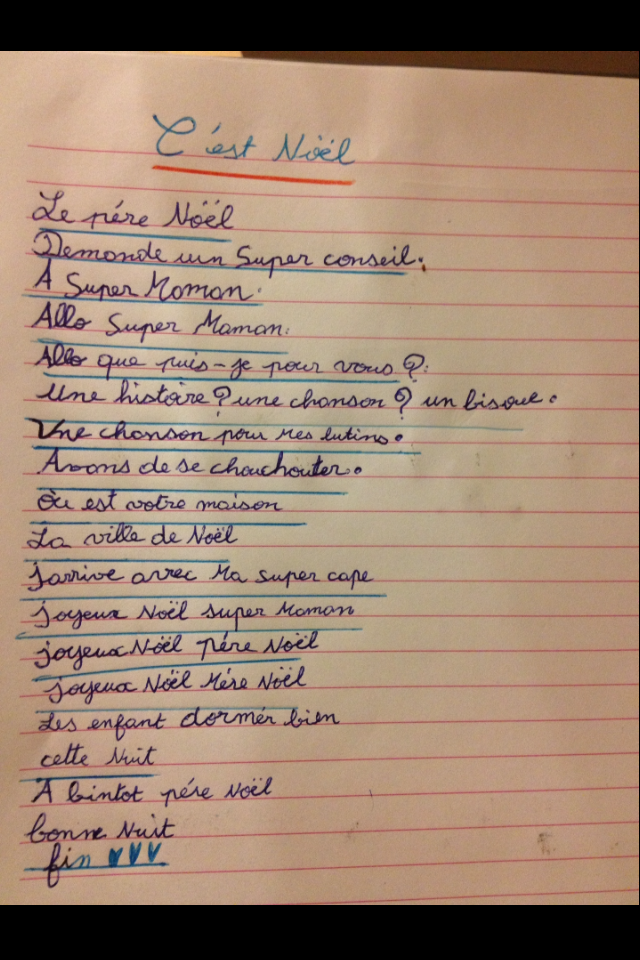 C'est Noël
Le pére Noël
Demande un Super conseil.
A Super Maman.
Allo Super Maman.
Allo que puis-je pour vous ?.
Une histoire ? une chanson ? un bisoue.
Une chanson pour mes lutins.
Avans de se chouchouter.
Où est votre maison
La ville de Noël
J'arrive avec Ma super cape
joyeux Noël super Maman
joyeux Noël pére Noël
joyeux Noël Mére Noël
Les enfant dormér bien
cette Nuit
A bintot pére Noël
bonne Nuit
fin